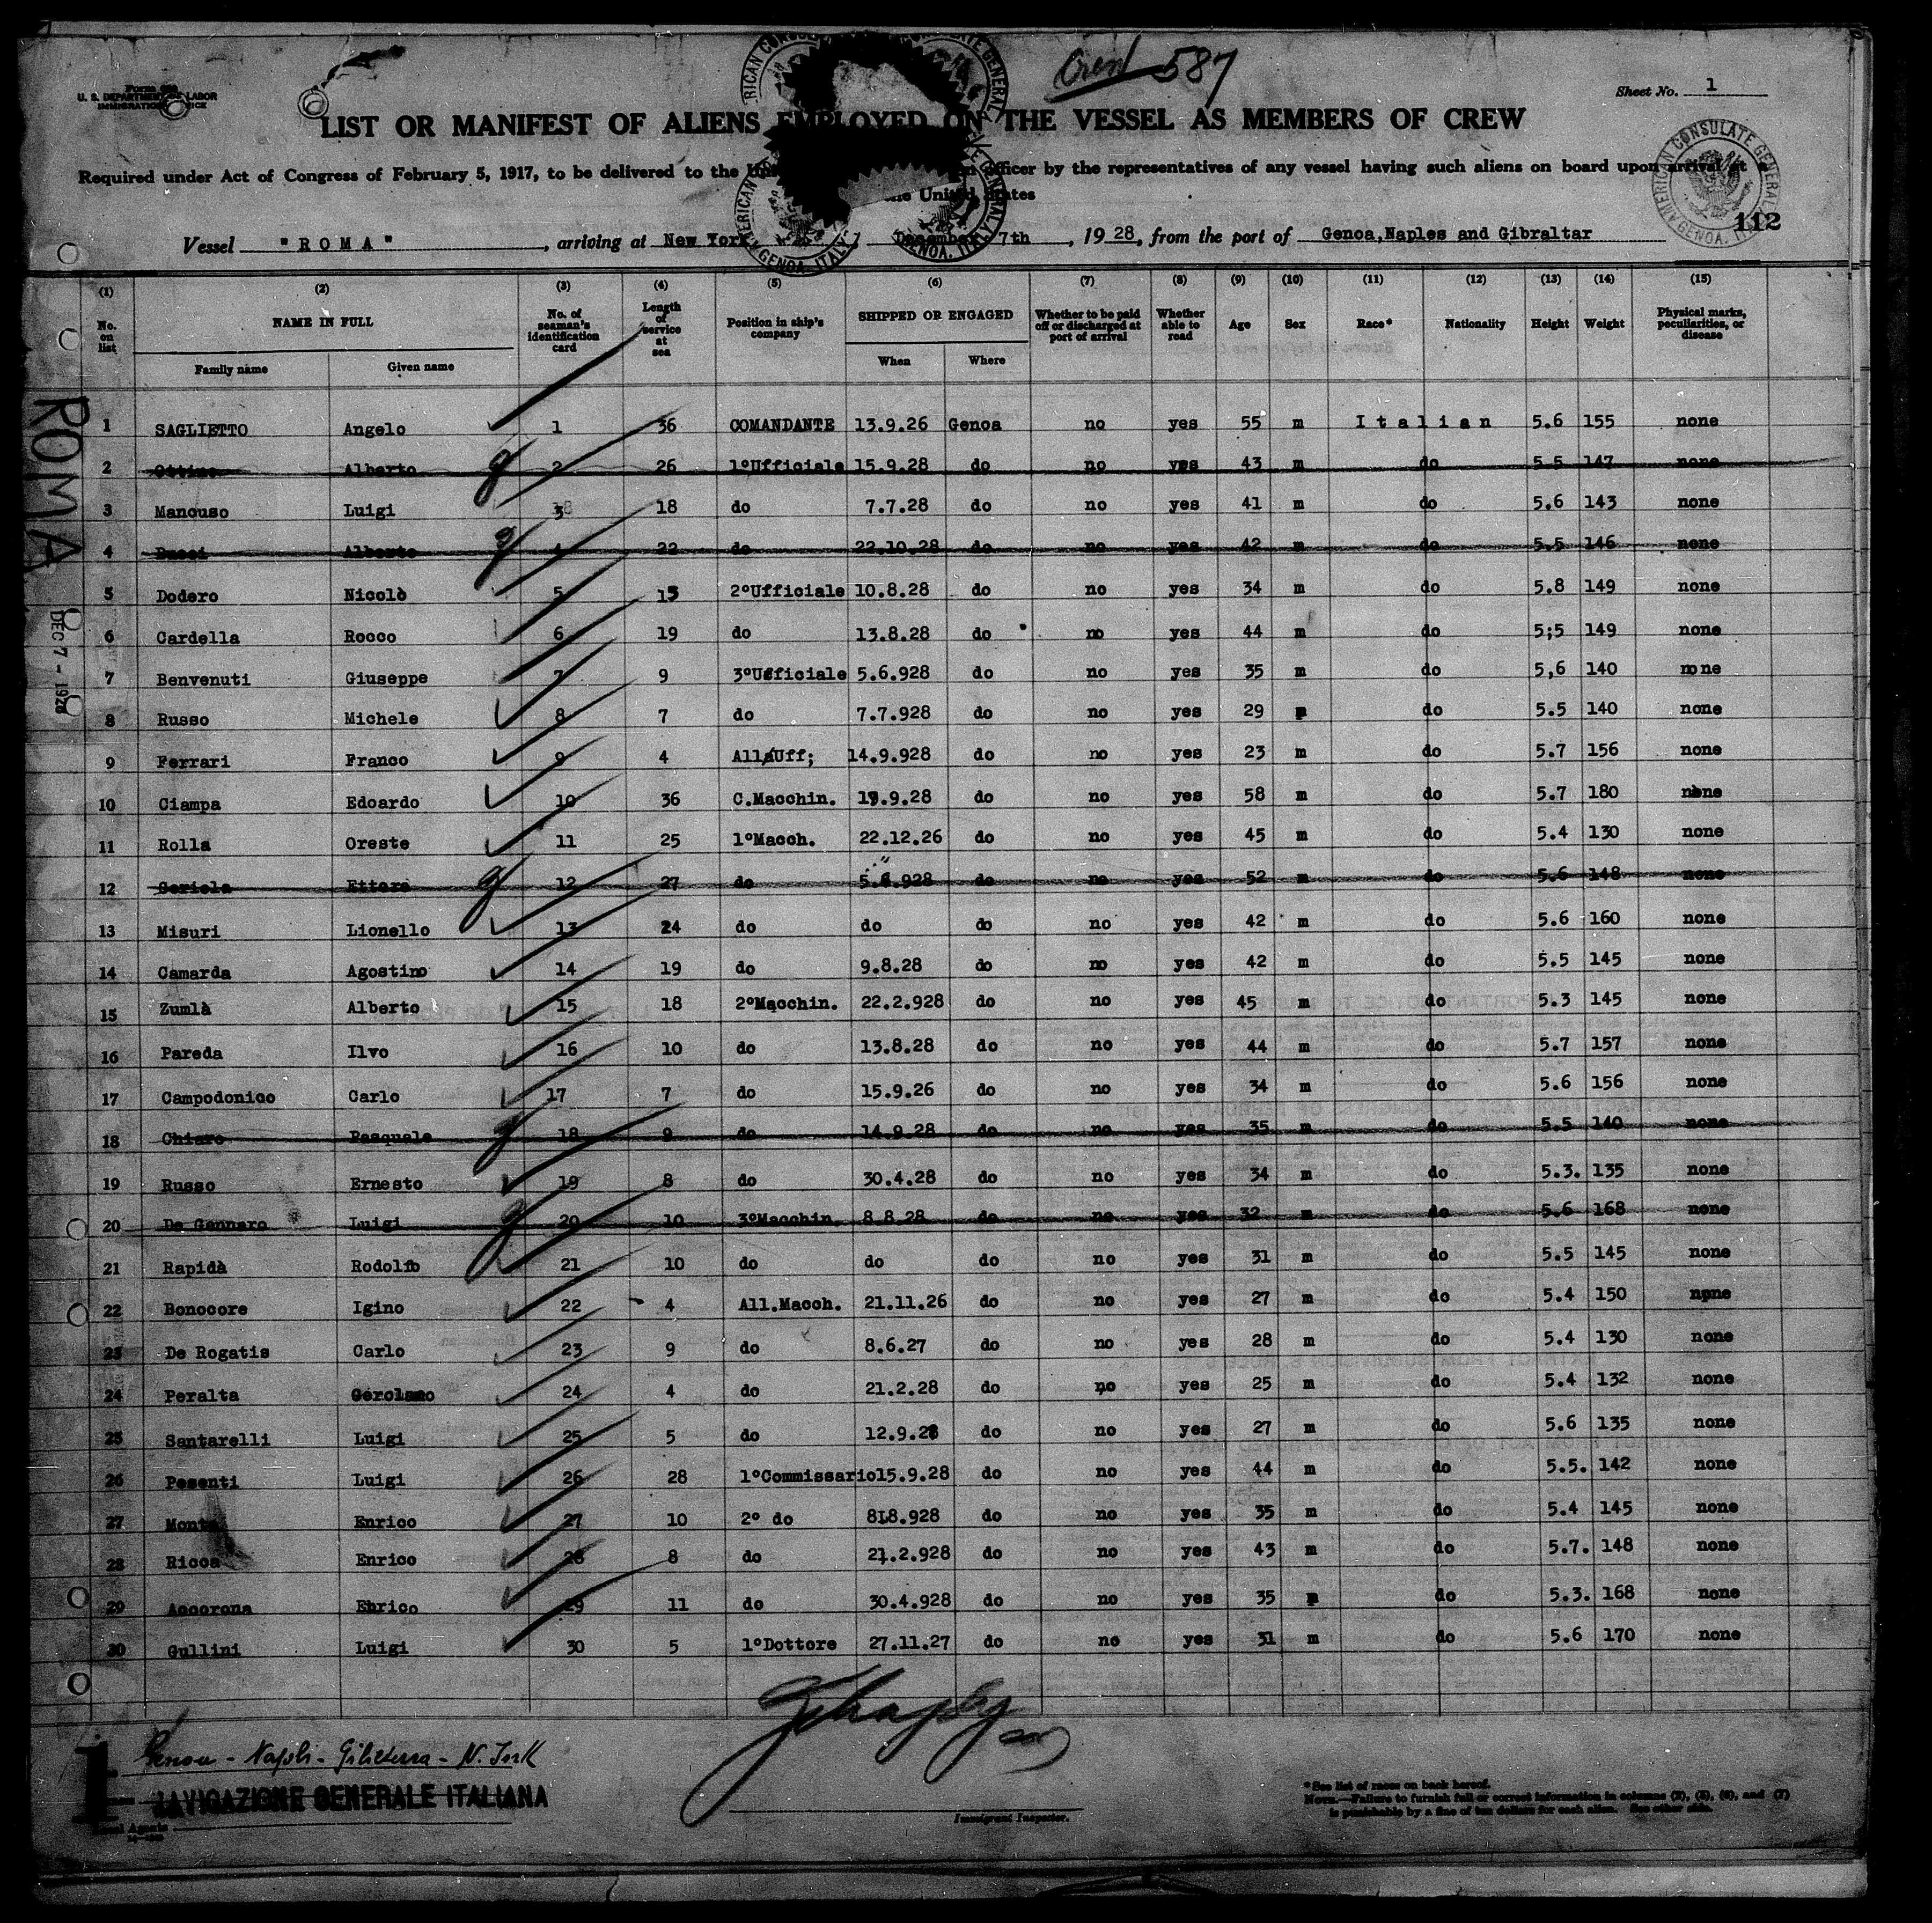 Crew 587
Form 680
U. S. DEPARTMENT OF LABOR
IMMIGRATION SERVICE
Sheet No. 1
LIST OR MANIFEST OF ALIENS EMPLOYED ON THE VESSEL AS MEMBERS OF CREW
Required under Act of Congress of February 5, 1917, to be delivered to the officer by the representatives of any vessel having such aliens on board upon arrival at a
the United States
AMERICAN CONSULATE GENERAL
GENOA, ITALY
112
Vessel "ROMA", arriving at New York, December 7th, 1928, from the port of Genoa,Naples and Gibraltar
(1) (2) (3) (4) (5) (6) (7) (8) (9) (10) (11) (12) (13) (14) (15)
No. on list NAME IN FULL No. of seaman's identification card Length of service at sea Position in ship's company SHIPPED OR ENGAGED Whether to be paid off or discharged at port of arrival Whether able to read Age Sex Race* Nationality Height Weight Physical marks, peculiarities, or disease
Family name Given name When Where
1 SAGLIETTO Angelo 1 36 COMANDANTE 13.9.26 Genoa no yes 55 m Italian 5.6 155 none
2 Alberto 2 26 1°Ufficiale 15.9.28 do no yes 43 m do 5.5 147 none
3 Mancuso Luigi 3 18 do 7.7.28 do no yes 41 m do 5.6 143 none
4 Alberto 4 22 do 22.10.28 do no yes 42 m do 5.5 146 none
5 Dodero Nicolò 5 15 2°Ufficiale 10.8.28 do no yes 34 m do 5.8 149 none
6 Cardella Rocco 6 19 do 13.8.28 do no yes 44 m do 5;5 149 none
7 Benvenuti Giuseppe 7 9 3°Ufficiale 5.6.928 do no yes 35 m do 5,6 140 none
8 Russo Michele 8 7 do 7.7.928 do no yes 29 do 5.5 140 none
9 Ferrari Franco 9 4 All/Uff; 14.9.928 do no yes 23 m do 5.7 156 none
10 Ciampa Edoardo 10 36 C.Macchin. .9.28 do no yes 58 m do 5.7 180 none
11 Rolla Oreste 11 25 1°Macch. 22.12.26 do no yes 45 m do 5.4 130 none
12 Ettore 12 27 do 5.6.928 do no yes 52 m do 5.6 148 none
13 Misuri Lionello 13 24 do do do no yes 42 m do 5.6 160 none
14 Camarda Agostino 14 19 do 9.8.28 do no yes 42 m do 5.5 145 none
15 Zumlà Alberto 15 18 2°Macchin. 22.2.928 do no yes 45 m do 5.3 145 none
16 Pareda Ilvo 16 10 do 13.8.28 do no yes 44 m do 5.7 157 none
17 Campodonico Carlo 17 7 do 15.9.26 do no yes 34 m do 5.6 156 none
18 Chiaro Pasquale 18 9 do 14.9.28 do no yes 35 m do 5.5 140 none
19 Russo Ernesto 19 8 do 30.4.28 do no yes 34 m do 5.3. 135 none
20 De Gennaro Luigi 20 10 3°Macchin. 8.8.28 do no yes 32 m do 5.6 168 none
21 Rapidà Rodolfo 21 10 do do do no yes 31 m do 5.5 145 none
22 Bonocore Igino 22 4 All.Macch. 21.11.26 do no yes 27 m do 5.4 150 none
23 De Rogatis Carlo 23 9 do 8.6.27 do no yes 28 m do 5.4 130 none
24 Peralta Gerolamo 24 4 do 21.2.28 do no yes 25 m do 5.4 132 none
25 Santarelli Luigi 25 5 do 12.9.28 do no yes 27 m do 5.6 135 none
26 Pesenti Luigi 26 28 1°Commissario 15.9.28 do no yes 44 m do 5.5. 142 none
27 Enrico 27 10 2° do 8.8.928 do no yes 35 m do 5.4 145 none
28 Ricca Enrico 28 8 do 21.2.928 do no yes 43 m do 5.7. 148 none
29 Accorona Enrico 29 11 do 30.4.928 do no yes 35 do 5.3. 168 none
30 Gullini Luigi 30 5 1°Dottore 27.11.27 do no yes 31 m do 5.6 170 none
ROMA
DEC 7 - 1928
Genova - Napoli - Gibilterra - N. York
1
NAVIGAZIONE GENERALE ITALIANA
Immigrant Inspector.
*See list of races on back hereof.
NOTE.—Failure to furnish full or correct information in columns (2), (5), (6), and (7)
is punishable by a fine of ten dollars for each alien. See other side.